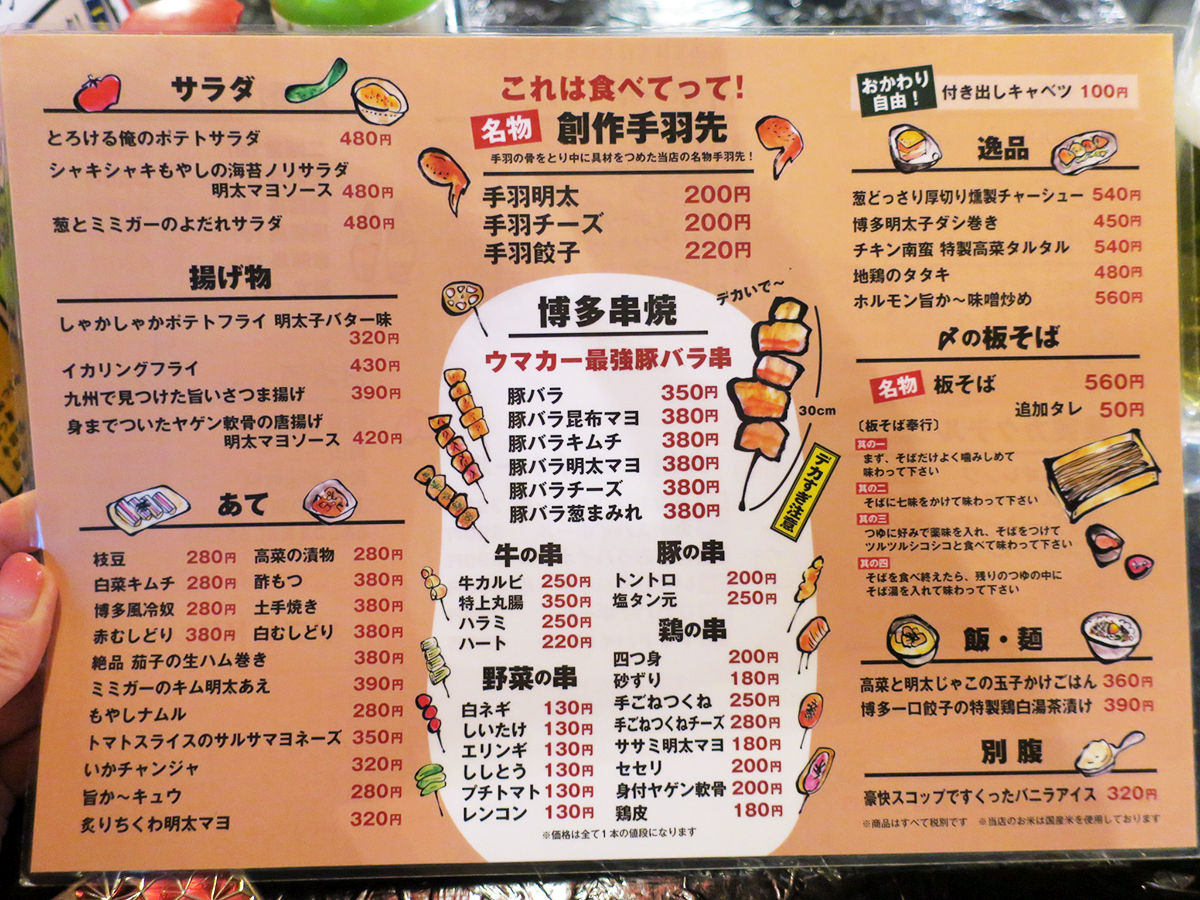 サラダ
とろける俺のポテトサラダ 480円
シャキシャキもやしの海苔ノリサラダ
明太マヨソース 480円
葱とミミガーのよだれサラダ 480円
揚げ物
しゃかしゃかポテトフライ 明太子バター味
320円
イカリングフライ 430円
九州で見つけた旨いさつま揚げ 390円
身までついたヤゲン軟骨の唐揚げ
明太マヨソース 420円
あて
枝豆 280円 高菜の漬物 280円
白菜キムチ 280円 酢もつ 380円
博多風冷奴 280円 土手焼き 380円
赤むしどり 380円 白むしどり 380円
絶品 茄子の生ハム巻き 380円
ミミガーのキム明太あえ 390円
もやしナムル 280円
トマトスライスのサルサマヨネーズ 350円
いかチャンジャ 320円
旨か～キュウ 280円
炙りちくわ明太マヨ 320円
これは食べてって!
名物 創作手羽先
手羽の骨をとり中に具材をつめた当店の名物手羽先!
手羽明太 200円
手羽チーズ 200円
手羽餃子 220円
博多串焼
デカいで～
ウマカー最強豚バラ串
30cm
デカすぎ注意
豚バラ 350円
豚バラ昆布マヨ 380円
豚バラキムチ 380円
豚バラ明太マヨ 380円
豚バラチーズ 380円
豚バラ葱まみれ 380円
牛の串
牛カルビ 250円
特上丸腸 350円
ハラミ 250円
ハート 220円
野菜の串
白ネギ 130円
しいたけ 130円
エリンギ 130円
ししとう 130円
プチトマト 130円
レンコン 130円
豚の串
トントロ 200円
塩タン元 250円
鶏の串
四つ身 200円
砂ずり 180円
手ごねつくね 250円
手ごねつくねチーズ 280円
ササミ明太マヨ 180円
セセリ 200円
身付ヤゲン軟骨 200円
鶏皮 180円
※価格は全て1本の値段になります
おかわり
自由!
付き出しキャベツ 100円
逸品
葱どっさり厚切り燻製チャーシュー 540円
博多明太子ダシ巻き 450円
チキン南蛮 特製高菜タルタル 540円
地鶏のタタキ 480円
ホルモン旨か～味噌炒め 560円
〆の板そば
名物 板そば 560円
追加タレ 50円
〔板そば奉行〕
其の一
まず、そばだけよく噛みしめて
味わって下さい
其の二
そばに七味をかけて味わって下さい
其の三
つゆに好みで薬味を入れ、そばをつけて
ツルツルシコシコと食べて味わって下さい
其の四
そばを食べ終えたら、残りのつゆの中に
そば湯を入れて味わって下さい
飯・麺
高菜と明太じゃこの玉子かけごはん 360円
博多一口餃子の特製鶏白湯茶漬け 390円
別腹
豪快スコップですくったバニラアイス 320円
※商品はすべて税別です ※当店のお米は国産米を使用しております